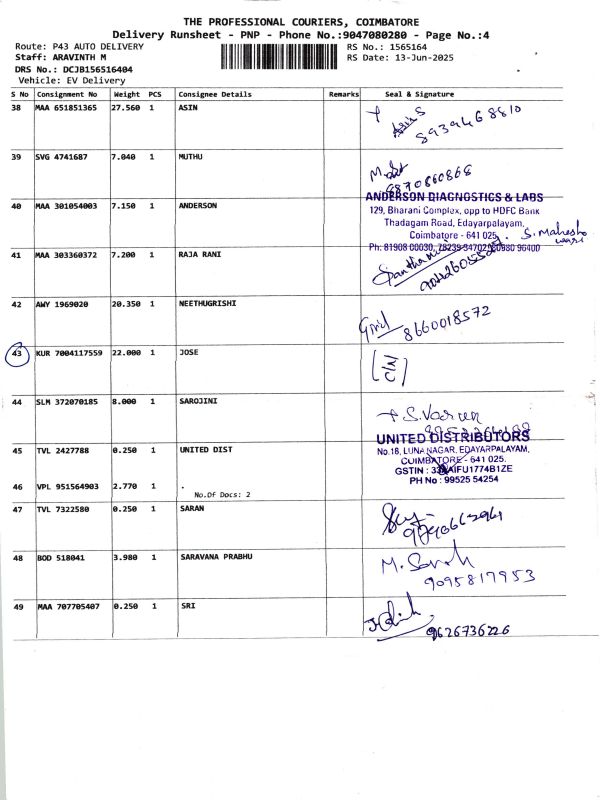 THE PROFESSIONAL COURIERS, COIMBATORE
Delivery Runsheet - PNP - Phone No.:9047080280 - Page No.:4
Route: P43 AUTO DELIVERY
RS No.: 1565164
Staff: ARAVINTH M
RS Date: 13-Jun-2025
DRS No.: DCJB156516404
Vehicle: EV Delivery
S No Consignment No Weight PCS Consignee Details Remarks Seal & Signature
38 MAA 651851365 27.560 1 ASIN
8939468810
39 SVG 4741687 7.040 1 MUTHU
8870660868
40 MAA 301054003 7.150 1 ANDERSON
ANDERSON DIAGNOSTICS & LABS
129, Bharani Complex, opp to HDFC Bank
Thadagam Road, Edayarpalayam,
Coimbatore - 641 025.
S. Maheshwari
Ph: 81908 00030,
41 MAA 303360372 7.200 1 RAJA RANI
42 AWY 1969020 20.350 1 NEETHUGRISHI
8660018572
43 KUR 7004117559 22.000 1 JOSE
44 SLM 372070185 8.000 1 SAROJINI
S. Varun
45 TVL 2427788 0.250 1 UNITED DIST
UNITED DISTRIBUTORS
No.18, LUNA NAGAR, EDAYARPALAYAM,
COIMBATORE - 641 025.
GSTIN :
PH No : 99525 54254
46 VPL 951564903 2.770 1 .
No.Of Docs: 2
47 TVL 7322580 0.250 1 SARAN
48 BOD 518041 3.980 1 SARAVANA PRABHU
9095817953
49 MAA 707705407 0.250 1 SRI
9626736226